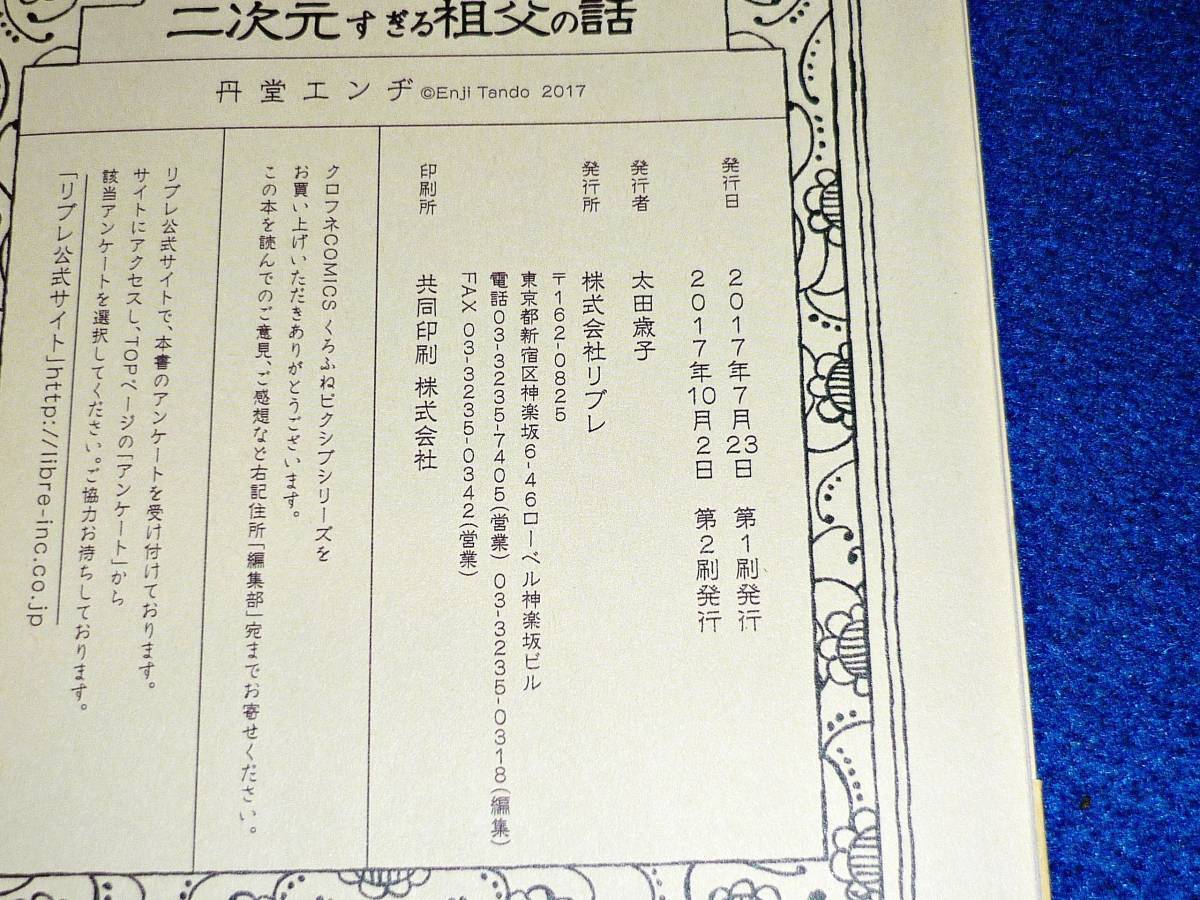 二次元すぎる祖父の話
丹堂エンヂ ©Enji Tando 2017
発行日 2017年7月23日 第1刷発行
2017年10月2日 第2刷発行
発行者 太田歳子
発行所 株式会社リブレ
〒162-0825
東京都新宿区神楽坂6-46ローベル神楽坂ビル
電話03-3235-7405(営業) 03-3235-0318(編集)
FAX 03-3235-0342(営業)
印刷所 共同印刷 株式会社
クロフネCOMICS くろふねピクシブシリーズを
お買い上げいただきありがとうございます。
この本を読んでのご意見、ご感想など右記住所「編集部」宛までお寄せください。
リブレ公式サイトで、本書のアンケートを受け付けております。
サイトにアクセスし、TOPページの「アンケート」から
該当アンケートを選択してください。ご協力お待ちしております。
「リブレ公式サイト」http://libre-inc.co.jp